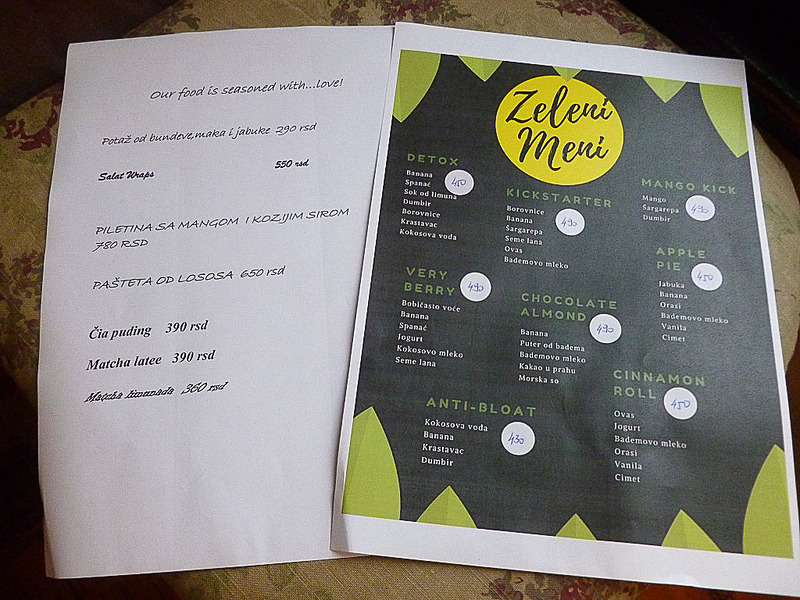 Our food is seasoned with...love!
Potaž od bundeve,maka i jabuke 290 rsd
Salat Wraps 550 rsd
PILETINA SA MANGOM I KOZIJIM SIROM
780 RSD
PAŠTETA OD LOSOSA 650 rsd
Čia puding 390 rsd
Matcha latee 390 rsd
Matcha limunada 360 rsd
Zeleni
Meni
DETOX
450
Banana
Spanać
Sok od limuna
Dumbir
Borovnice
Krastavac
Kokosova voda
KICKSTARTER
490
Borovnice
Banana
Šargarepa
Seme lana
Ovas
Bademovo mleko
MANGO KICK
490
Mango
Šargarepa
Dumbir
VERY
BERRY
490
Bobičasto voće
Banana
Spanać
Jogurt
Kokosovo mleko
Seme lana
CHOCOLATE
ALMOND
490
Banana
Puter od badema
Bademovo mleko
Kakao u prahu
Morska so
APPLE
PIE
450
Jabuka
Banana
Orasi
Bademovo mleko
Vanila
Cimet
ANTI-BLOAT
430
Kokosova voda
Banana
Krastavac
Dumbir
CINNAMON
ROLL
450
Ovas
Jogurt
Bademovo mleko
Orasi
Vanila
Cimet